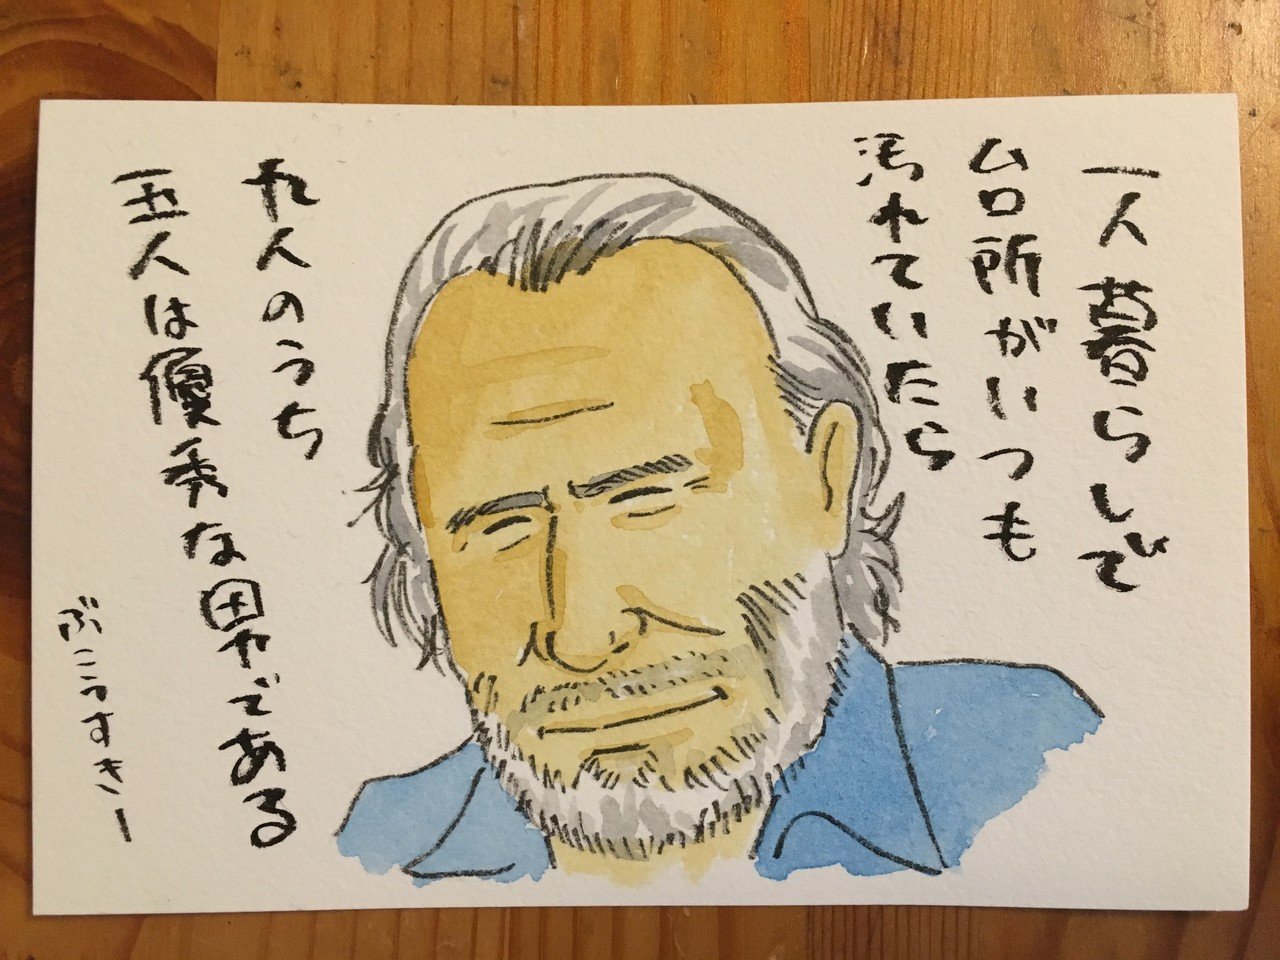 一人暮らしで
台所がいつも
汚れていたら
九人のうち
五人は優秀な男である
ぶこうすきー